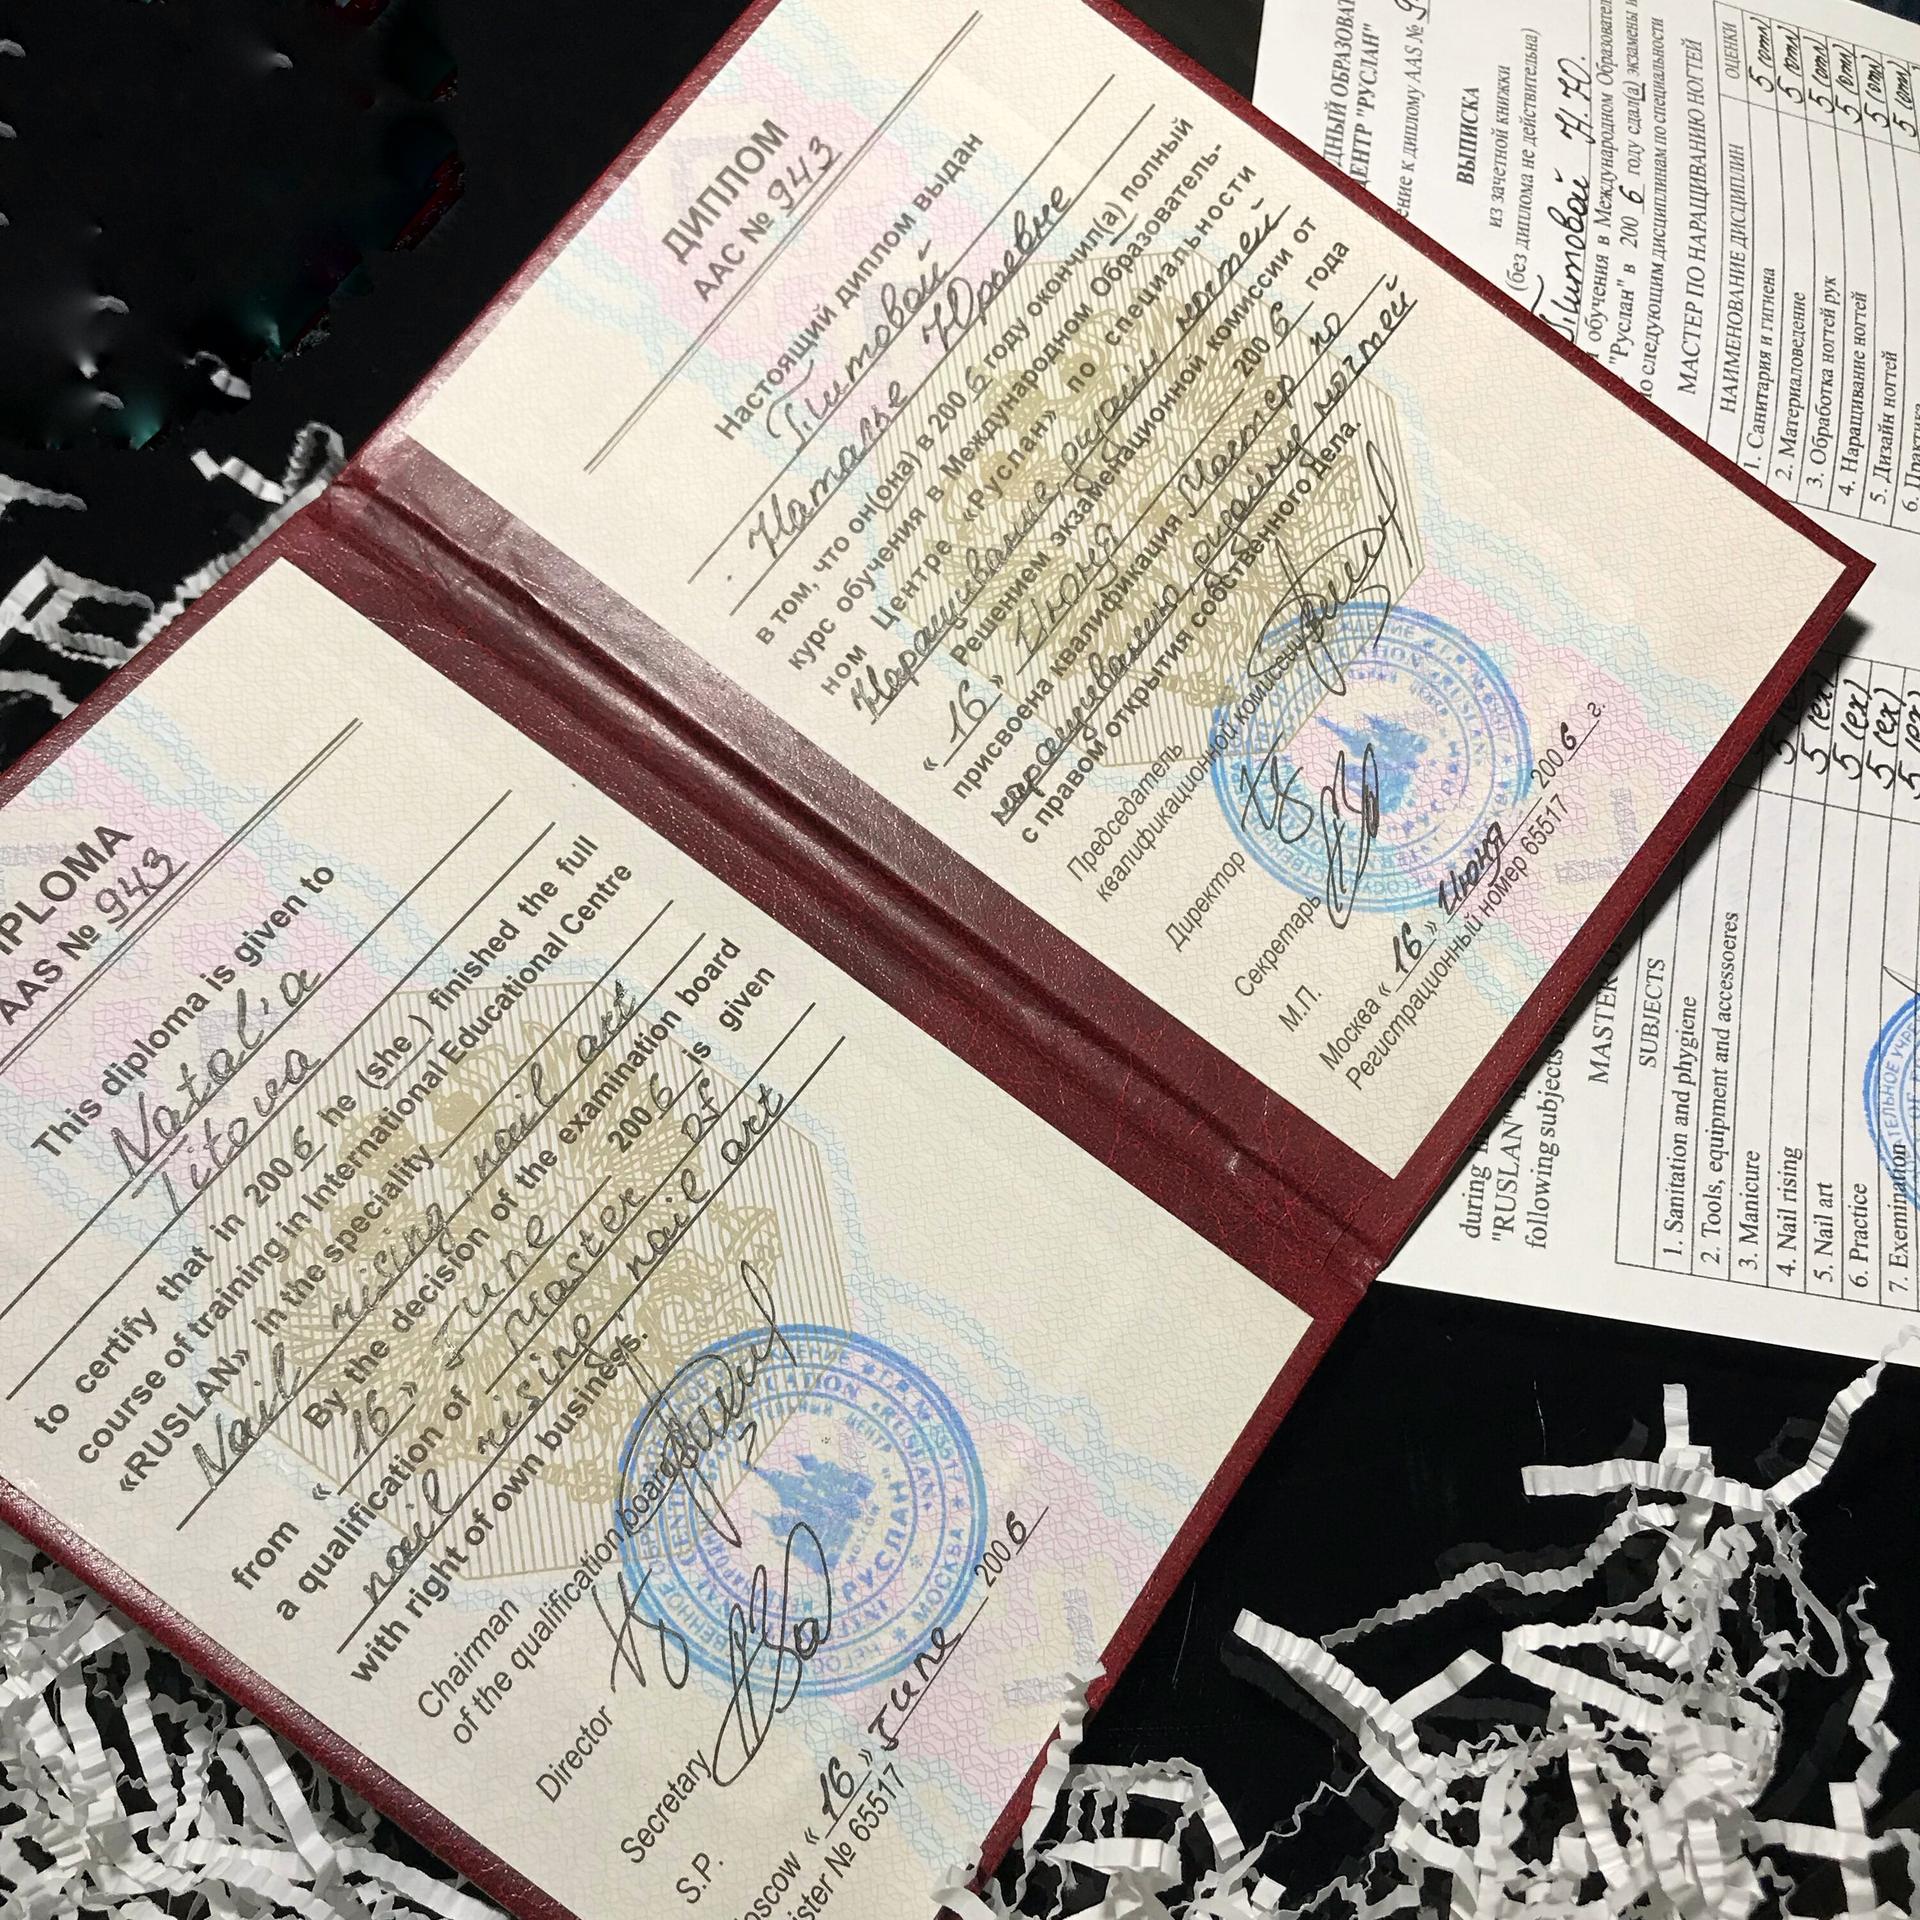 ДИПЛОМ
ААС № 943
Настоящий диплом выдан
Титовой
Наталье Юрьевне
в том, что он(она) в 2006 году окончил(а) полный
курс обучения в Международном Образователь-
ном Центре «Руслан» по специальности
Наращивание, дизайн ногтей
Решением экзаменационной комиссии от
«16» Июня 2006 года
присвоена квалификация Мастер по
наращиванию, дизайну ногтей
с правом открытия собственного дела.
Председатель
квалификационной комиссии
Директор
Секретарь
М.П.
Москва «16» Июня 2006 г.
Регистрационный номер 65517
IPLOMA
AAS № 943
This diploma is given to
Natalia
Titova
to certify that in 2006 he (she) finished the full
course of training in International Educational Centre
«RUSLAN» in the speciality
Nail rising, nail art
By the decision of the examination board
from «16» June 2006 is given
a qualification of Master of
nail rising, nail art
with right of own business.
Chairman
of the qualification board
Director
Secretary
S.P.
oscow «16» June 2006
ister № 65517
ДНЫЙ ОБРАЗОВАТ
ЦЕНТР "РУСЛАН"
ение к диплому AAS № 9
ВЫПИСКА
из зачетной книжки
(без диплома не действительна)
Титовой Н.Ю.
обучения в Международном Образовател
"Руслан" в 2006 году сдал(а) экзамены
по следующим дисциплинам по специальности
МАСТЕР ПО НАРАЩИВАНИЮ НОГТЕЙ
НАИМЕНОВАНИЕ ДИСЦИПЛИН ОЦЕНКИ
1. Санитария и гигиена 5 (отл)
2. Материаловедение 5 (отл)
3. Обработка ногтей рук 5 (отл)
4. Наращивание ногтей 5 (отл)
5. Дизайн ногтей 5 (отл)
6. Практика 5 (отл)
during
"RUSLAN"
following subjects
MASTER OF
SUBJECTS
1. Sanitation and phygiene
2. Tools, equipment and accessoreres 5 (ex)
3. Manicure 5 (ex)
4. Nail rising 5 (ex)
5. Nail art
6. Practice
7. Exemination